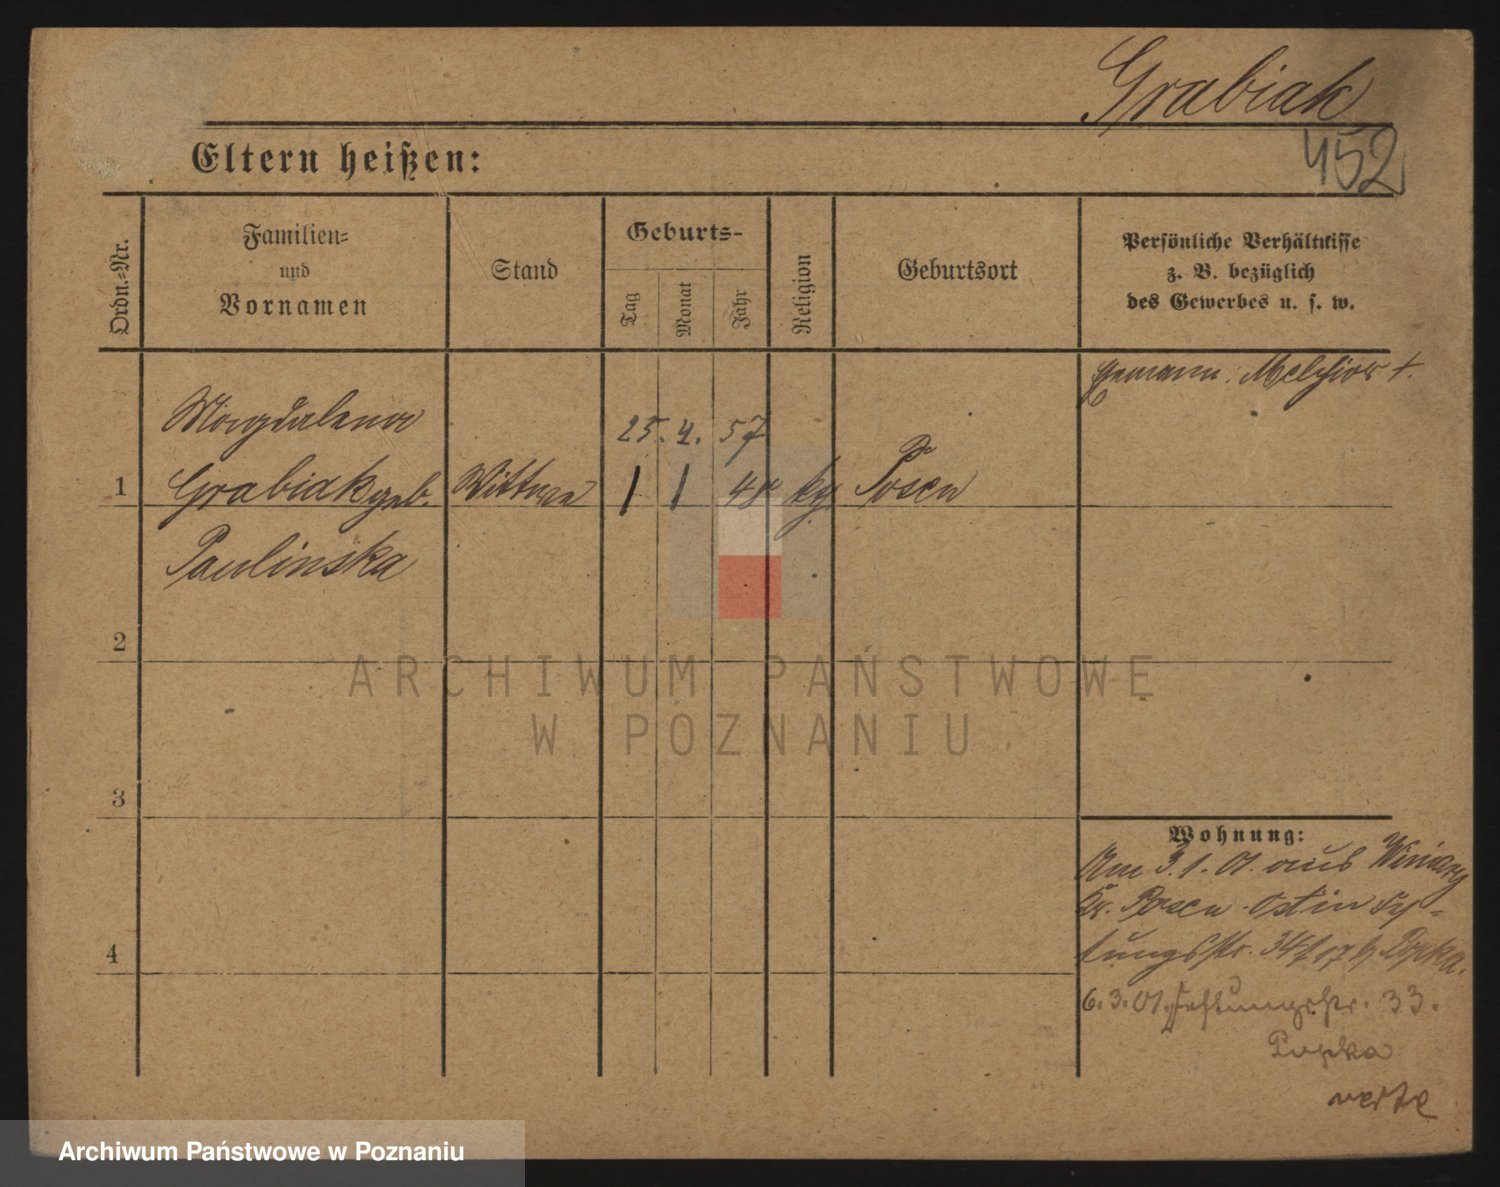 Grabiak
452
Eltern heißen:
Ordn.-Nr.
Familien-
und
Vornamen
Stand
Geburts-
Tag
Monat
Jahr
Religion
Geburtsort
Persönliche Verhältnisse
z. B. bezüglich
des Gewerbes u. s. w.
Ehemann: Melchior †.
Magdalena
25. 4. 57
1 Grabiak geb. Wittwe 1 1 48 kg Posen
Paulinska
2
3
4
Wohnung:
Am 3.1.01. aus Winiary
Kr. Posen Ostin Fes-
tungsstr. 34 b Popka.
6.3.01. Festungsstr. 33.
Popka
verte
ARCHIWUM PAŃSTWOWE
W POZNANIU
Archiwum Państwowe w Poznaniu